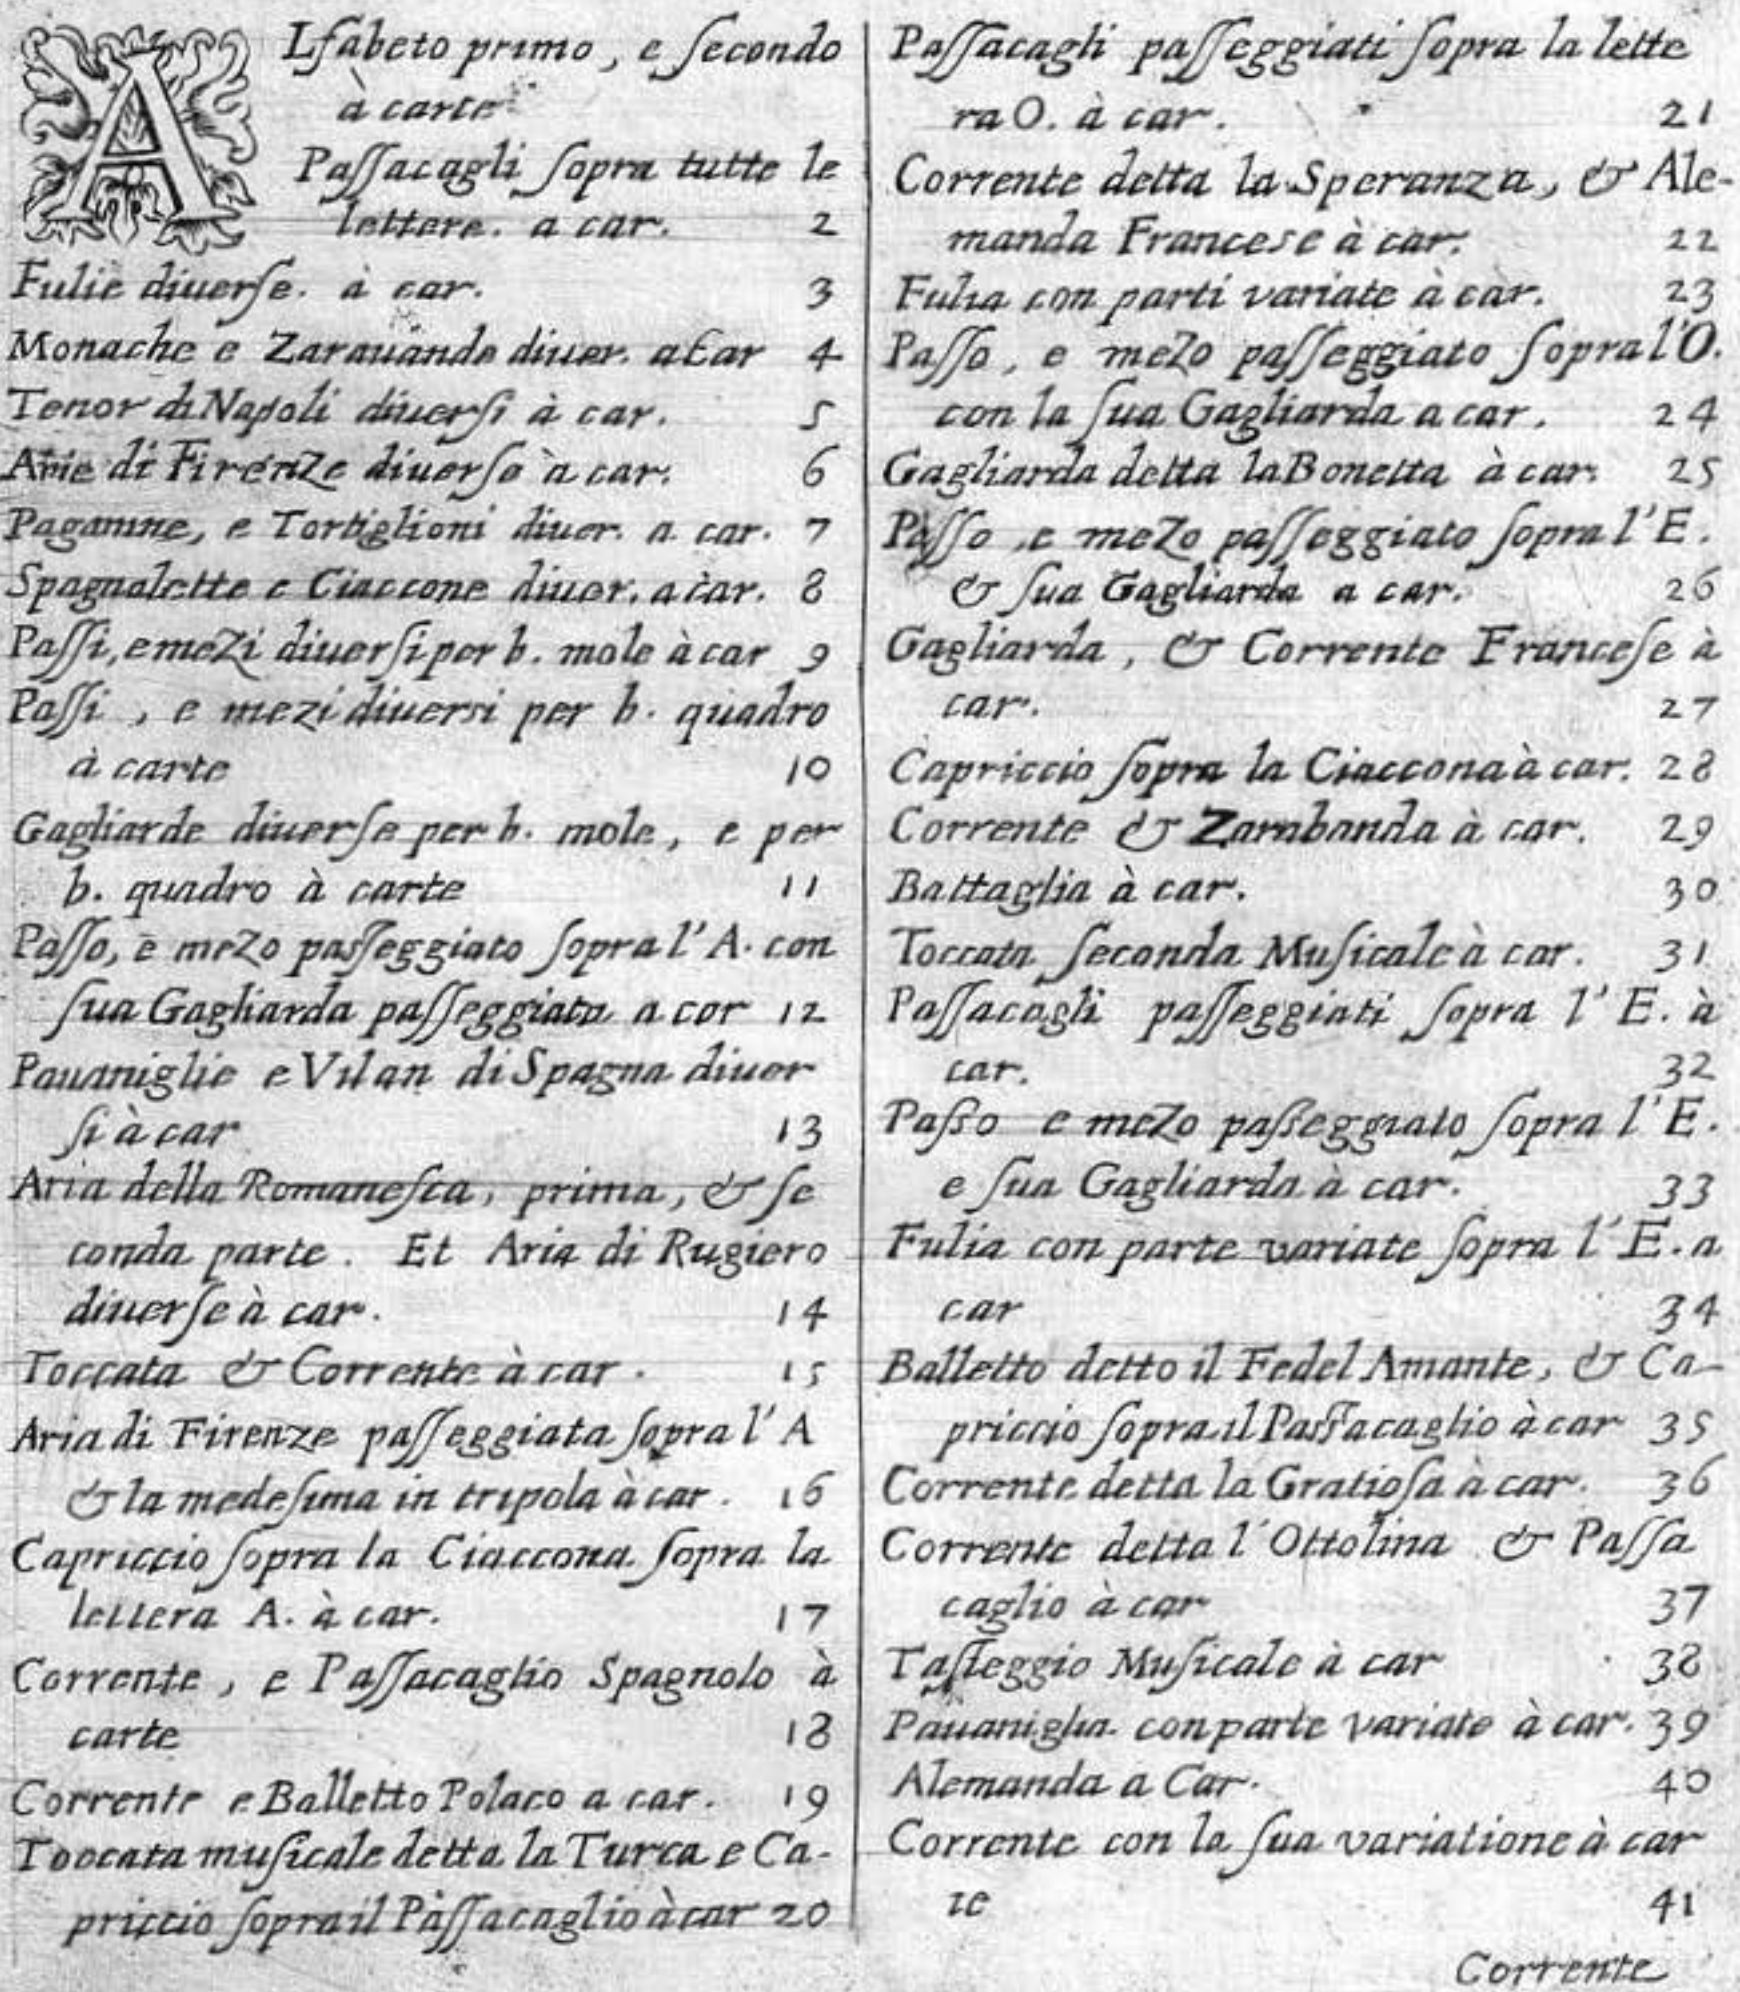 ALfabeto primo, e ſecondo
à carte
Paſſacagli ſopra tutte le
lettere. a car. 2
Fulie diuerſe. à car. 3
Monache e Zarauande diuer. a Car 4
Tenor di Napoli diuerſi à car. 5
Arie di Firenze diuerſe à car. 6
Paganine, e Tortiglioni diuer. a car. 7
Spagnolette e Ciaccone diuer. a car. 8
Paſſi, e mezi diuerſi per b. mole à car 9
Paſſi, e mezi diuersi per b. quadro
à carte 10
Gagliarde diuerſe per b. mole, e per
b. quadro à carte 11
Paſſo, e mezo paſſeggiato ſopra l'A. con
ſua Gagliarda paſſeggiata a cor 12
Pauaniglie e Vilan di Spagna diuer
ſi à car 13
Aria della Romaneſca, prima, & ſe
conda parte. Et Aria di Rugiero
diuerſe à car. 14
Toccata & Corrente à car. 15
Aria di Firenze paſſeggiata ſopra l'A
& la medeſima in tripola à car. 16
Capriccio ſopra la Ciaccona ſopra la
lettera A. à car. 17
Corrente, e Paſſacaglio Spagnolo à
carte 18
Corrente e Balletto Polaco a car. 19
Toocata muſicale detta la Turca e Ca-
priccio ſopra il Paſſacaglio à car 20
Paſſacagli paſſeggiati ſopra la lette
ra O. à car. 21
Corrente detta la Speranza, & Ale-
manda Francese à car. 22
Fulia con parti variate à car. 23
Paſſo, e mezo paſſeggiato ſopra l'O.
con la ſua Gagliarda a car. 24
Gagliarda detta la Bonetta à car. 25
Paſſo, e mezo paſſeggiato ſopra l'E.
& ſua Gagliarda a car. 26
Gagliarda, & Corrente Franceſe à
car. 27
Capriccio ſopra la Ciaccona à car. 28
Corrente & Zarabanda à car. 29
Battaglia à car. 30
Toccata ſeconda Muſicale à car. 31
Paſſacagli paſſeggiati ſopra l'E. à
car. 32
Paſso e mezo paſseggiato ſopra l'E.
e ſua Gagliarda à car. 33
Fulia con parte variate ſopra l'E. a
car 34
Balletto detto il Fedel Amante, & Ca-
priccio ſopra il Paſſacaglio à car 35
Corrente detta la Gratioſa à car. 36
Corrente detta l'Ottolina & Paſſa
caglio à car 37
Taſteggio Muſicale à car 38
Pauaniglia con parte variate à car. 39
Alemanda a Car. 40
Corrente con la ſua variatione à car
te 41
Corrente